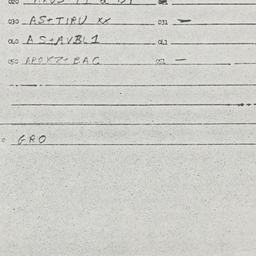 030 AS+TIPU XX 031 —
040 AS+AVBL1 041
050 APOXZ+BAC 051 —
GRO